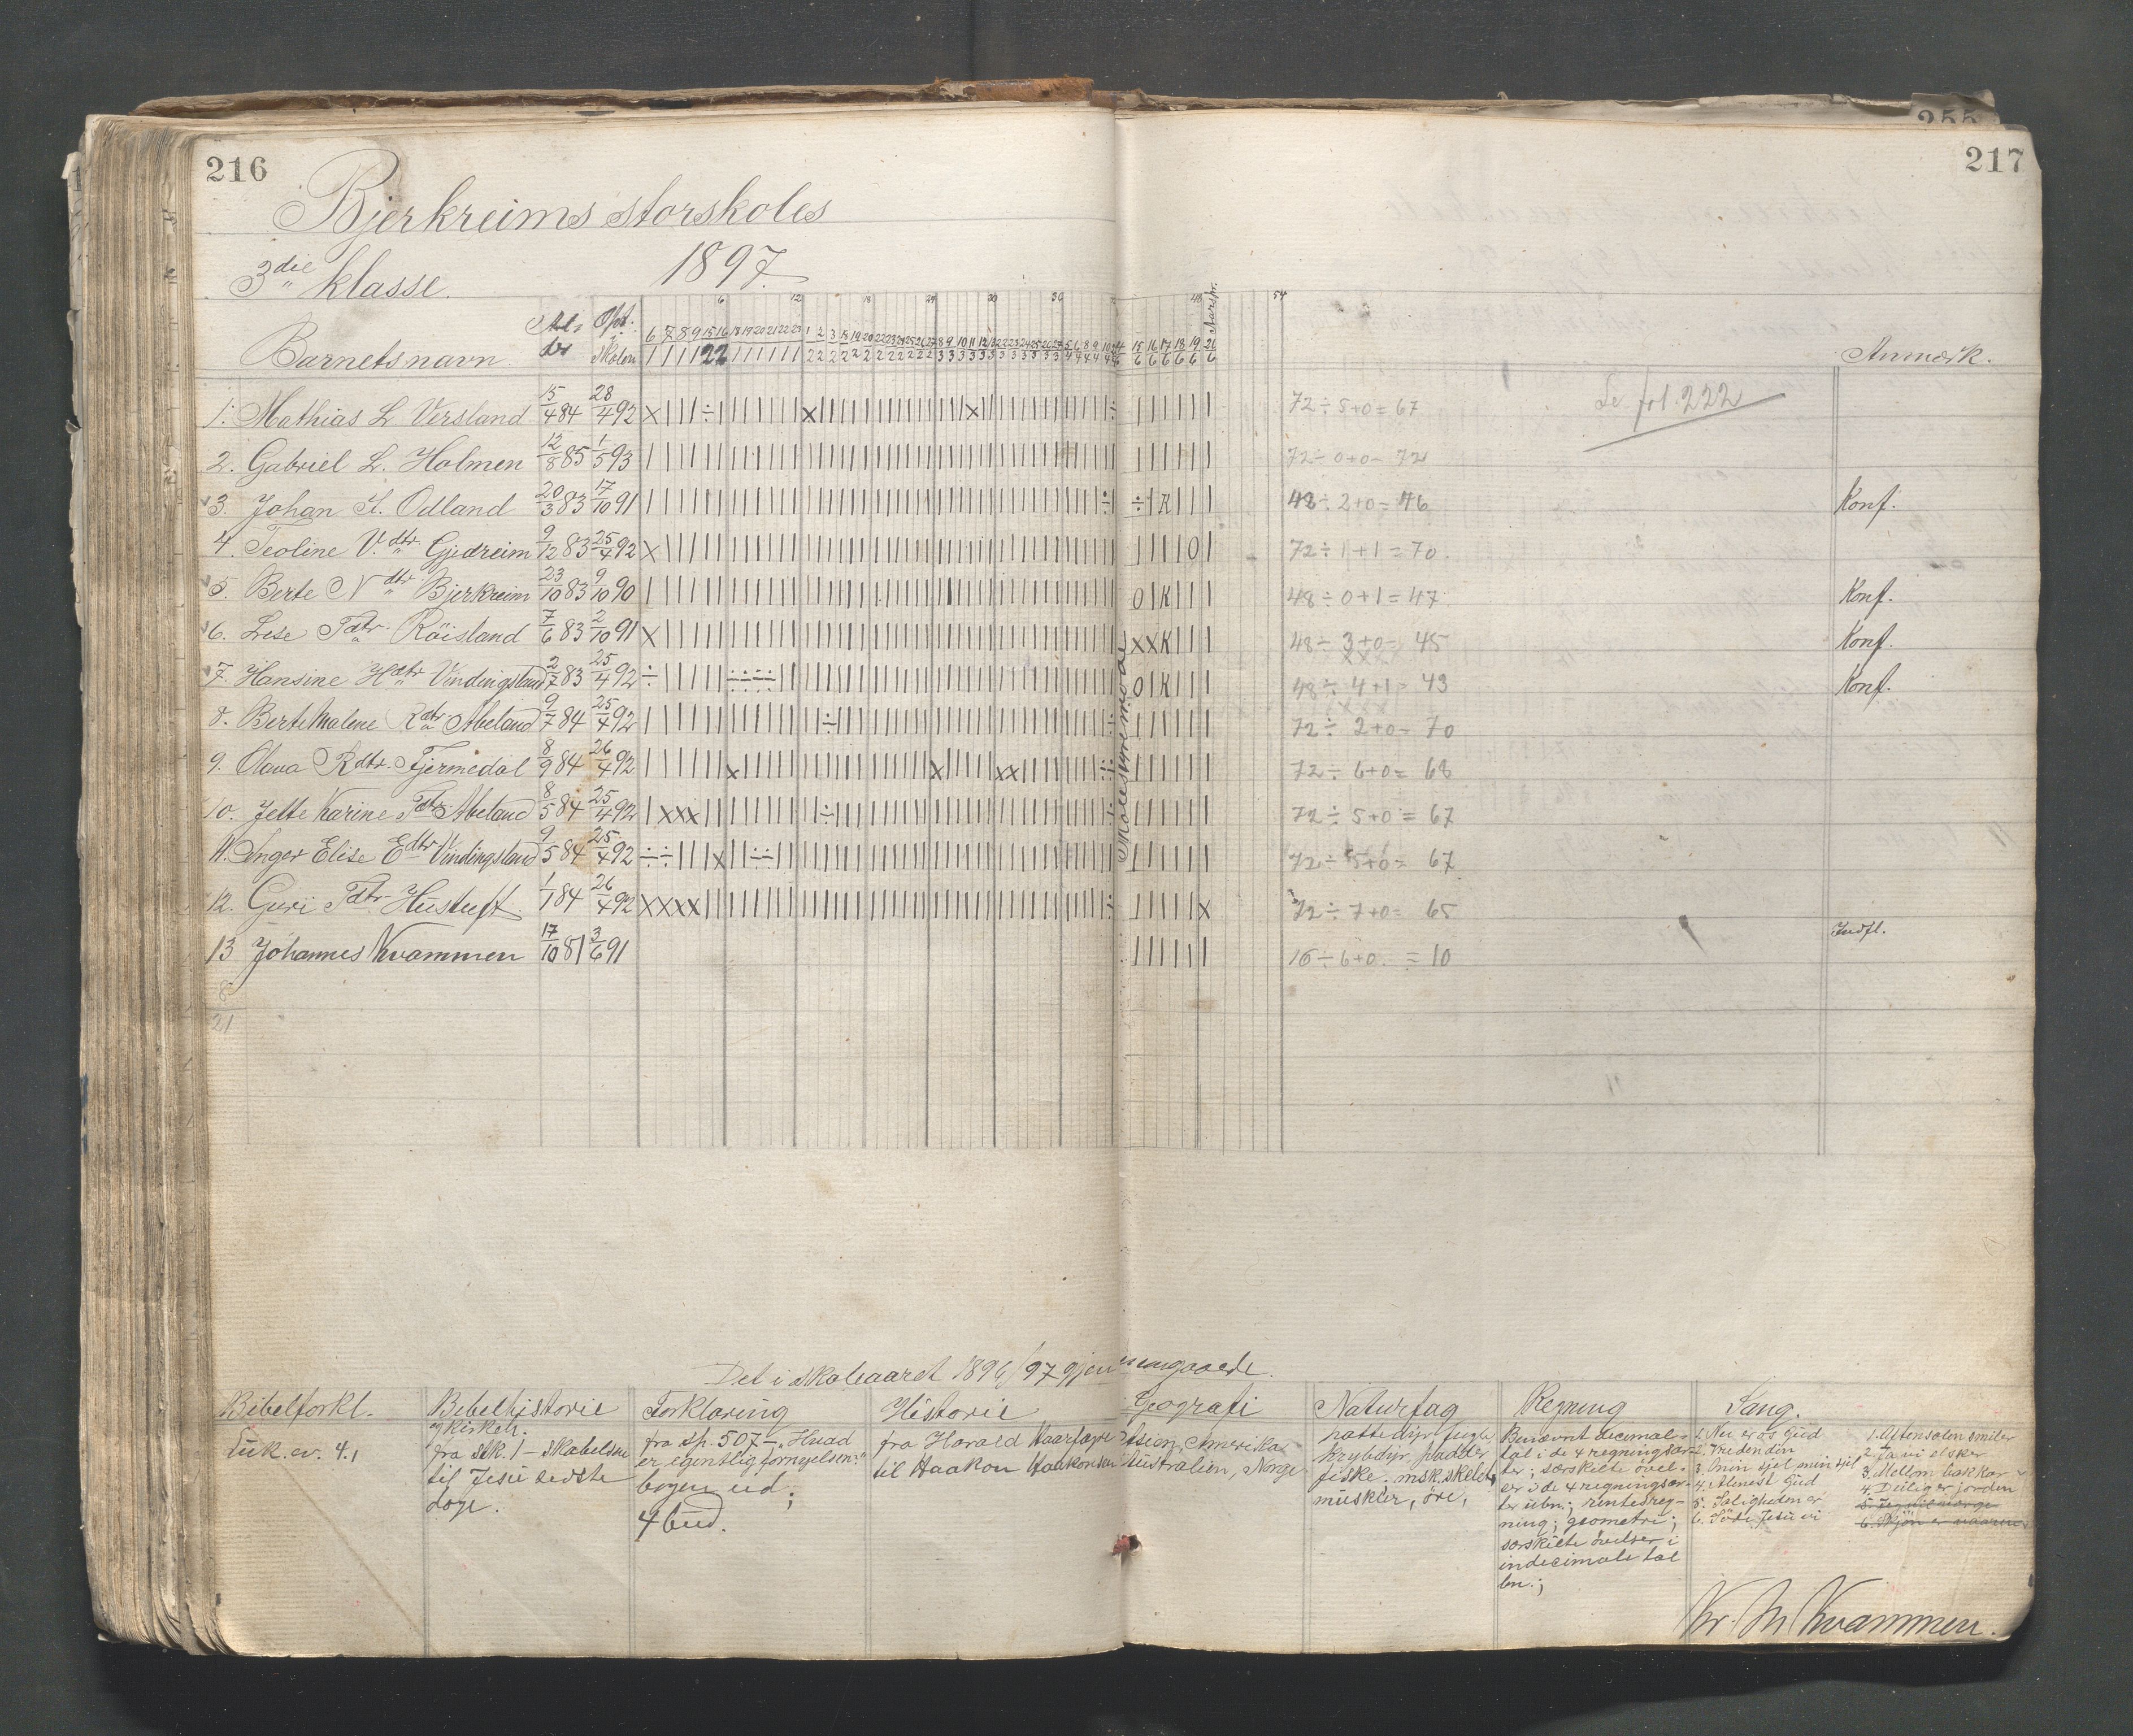 216
217
255
Bjerkreims storskoles
3die klasse. 1897.
Barnets navn. Al- der Opt. i skolen
6 12 18 24 30 36 48 54
Aarspr.
Skolestyremøde
Anmærk.
Se fol. 222
1. Mathias L Versland 15/4 84 28/4 92 72 ÷ 5+0 = 67
2. Gabriel L. Holmen 12/8 85 1/5 93 72 ÷ 0+0 = 72
3. Johan I. Odland 20/3 83 17/10 91 48 ÷ 2+0 = 46 Konf.
4. Teoline V.dtr Gjedreim 9/12 83 25/4 92 72 ÷ 1+1 = 70.
5. Berte N dtr Bjerkreim 23/10 83 9/10 90 48 ÷ 0+1 = 47 Konf.
6. Lise T dtr Röisland 7/6 83 2/10 91 48 ÷ 3+0 = 45 Konf.
7. Hansine H dtr Vindingsland 2/7 83 25/4 92 48 ÷ 4+1 = 43 Konf.
8. Berte Malene R dtr Abeland 9/7 84 25/4 92 72 ÷ 2+0 = 70
9. Olava R dtr. Fjermedal 8/9 84 26/4 92 72 ÷ 6+0 = 68
10. Jette Karine T dtr Abeland 8/5 84 25/4 92 72 ÷ 5+0 = 67
11. Inger Elise E dtr Vindingsland 9/5 84 25/4 92 72 ÷ 5+0 = 67
12. Guri T dtr. Hustuft 1/1 84 26/4 92 72 ÷ 7+0 = 65
13 Johannes Kvammen 17/10 81 3/6 91 16 ÷ 6+0 = 10 Indfl.
21
Det i skoleaaret 1896/97 gjennemgaaede.
Bibelforkl.
Luk. ev. 4.,
Bibelhistorie
og kirkeh.
fra stk. 1 - skabelsen
til Jesu sedste
dage.
Forklaring
fra sp. 507 - "Hvad
er egentlig fornyelsen"
bogen ud;
4 bud.
Historie
fra Harald Haarfagre
til Haakon Haakonsen
Geografi
Asien, Amerika
Australien, Norge
Naturfag
pattedyr, fugle
krybdyr, padder,
fiske. msk. skelet,
muskler, öre,
Regning
Benævnt decimal-
tal i de 4 regningsar-
ter; særskilte övel-
er i de 4 regningsar-
ter ubn.; rentesreg-
ning; geometri;
særskilte övelser i
indecimale tal
bn.;
Sang.
1. Nu er os Gud
2. Vreden din
3. Min sjel min sjel
4. Alenest Gud
5. Saligheden er
6. Söde Jesu vi
1. Aftensolen smiler
2. Ja vi elsker
3. Mellom bakkar
4. Deilig er jorden
Kr. M Kvammen.